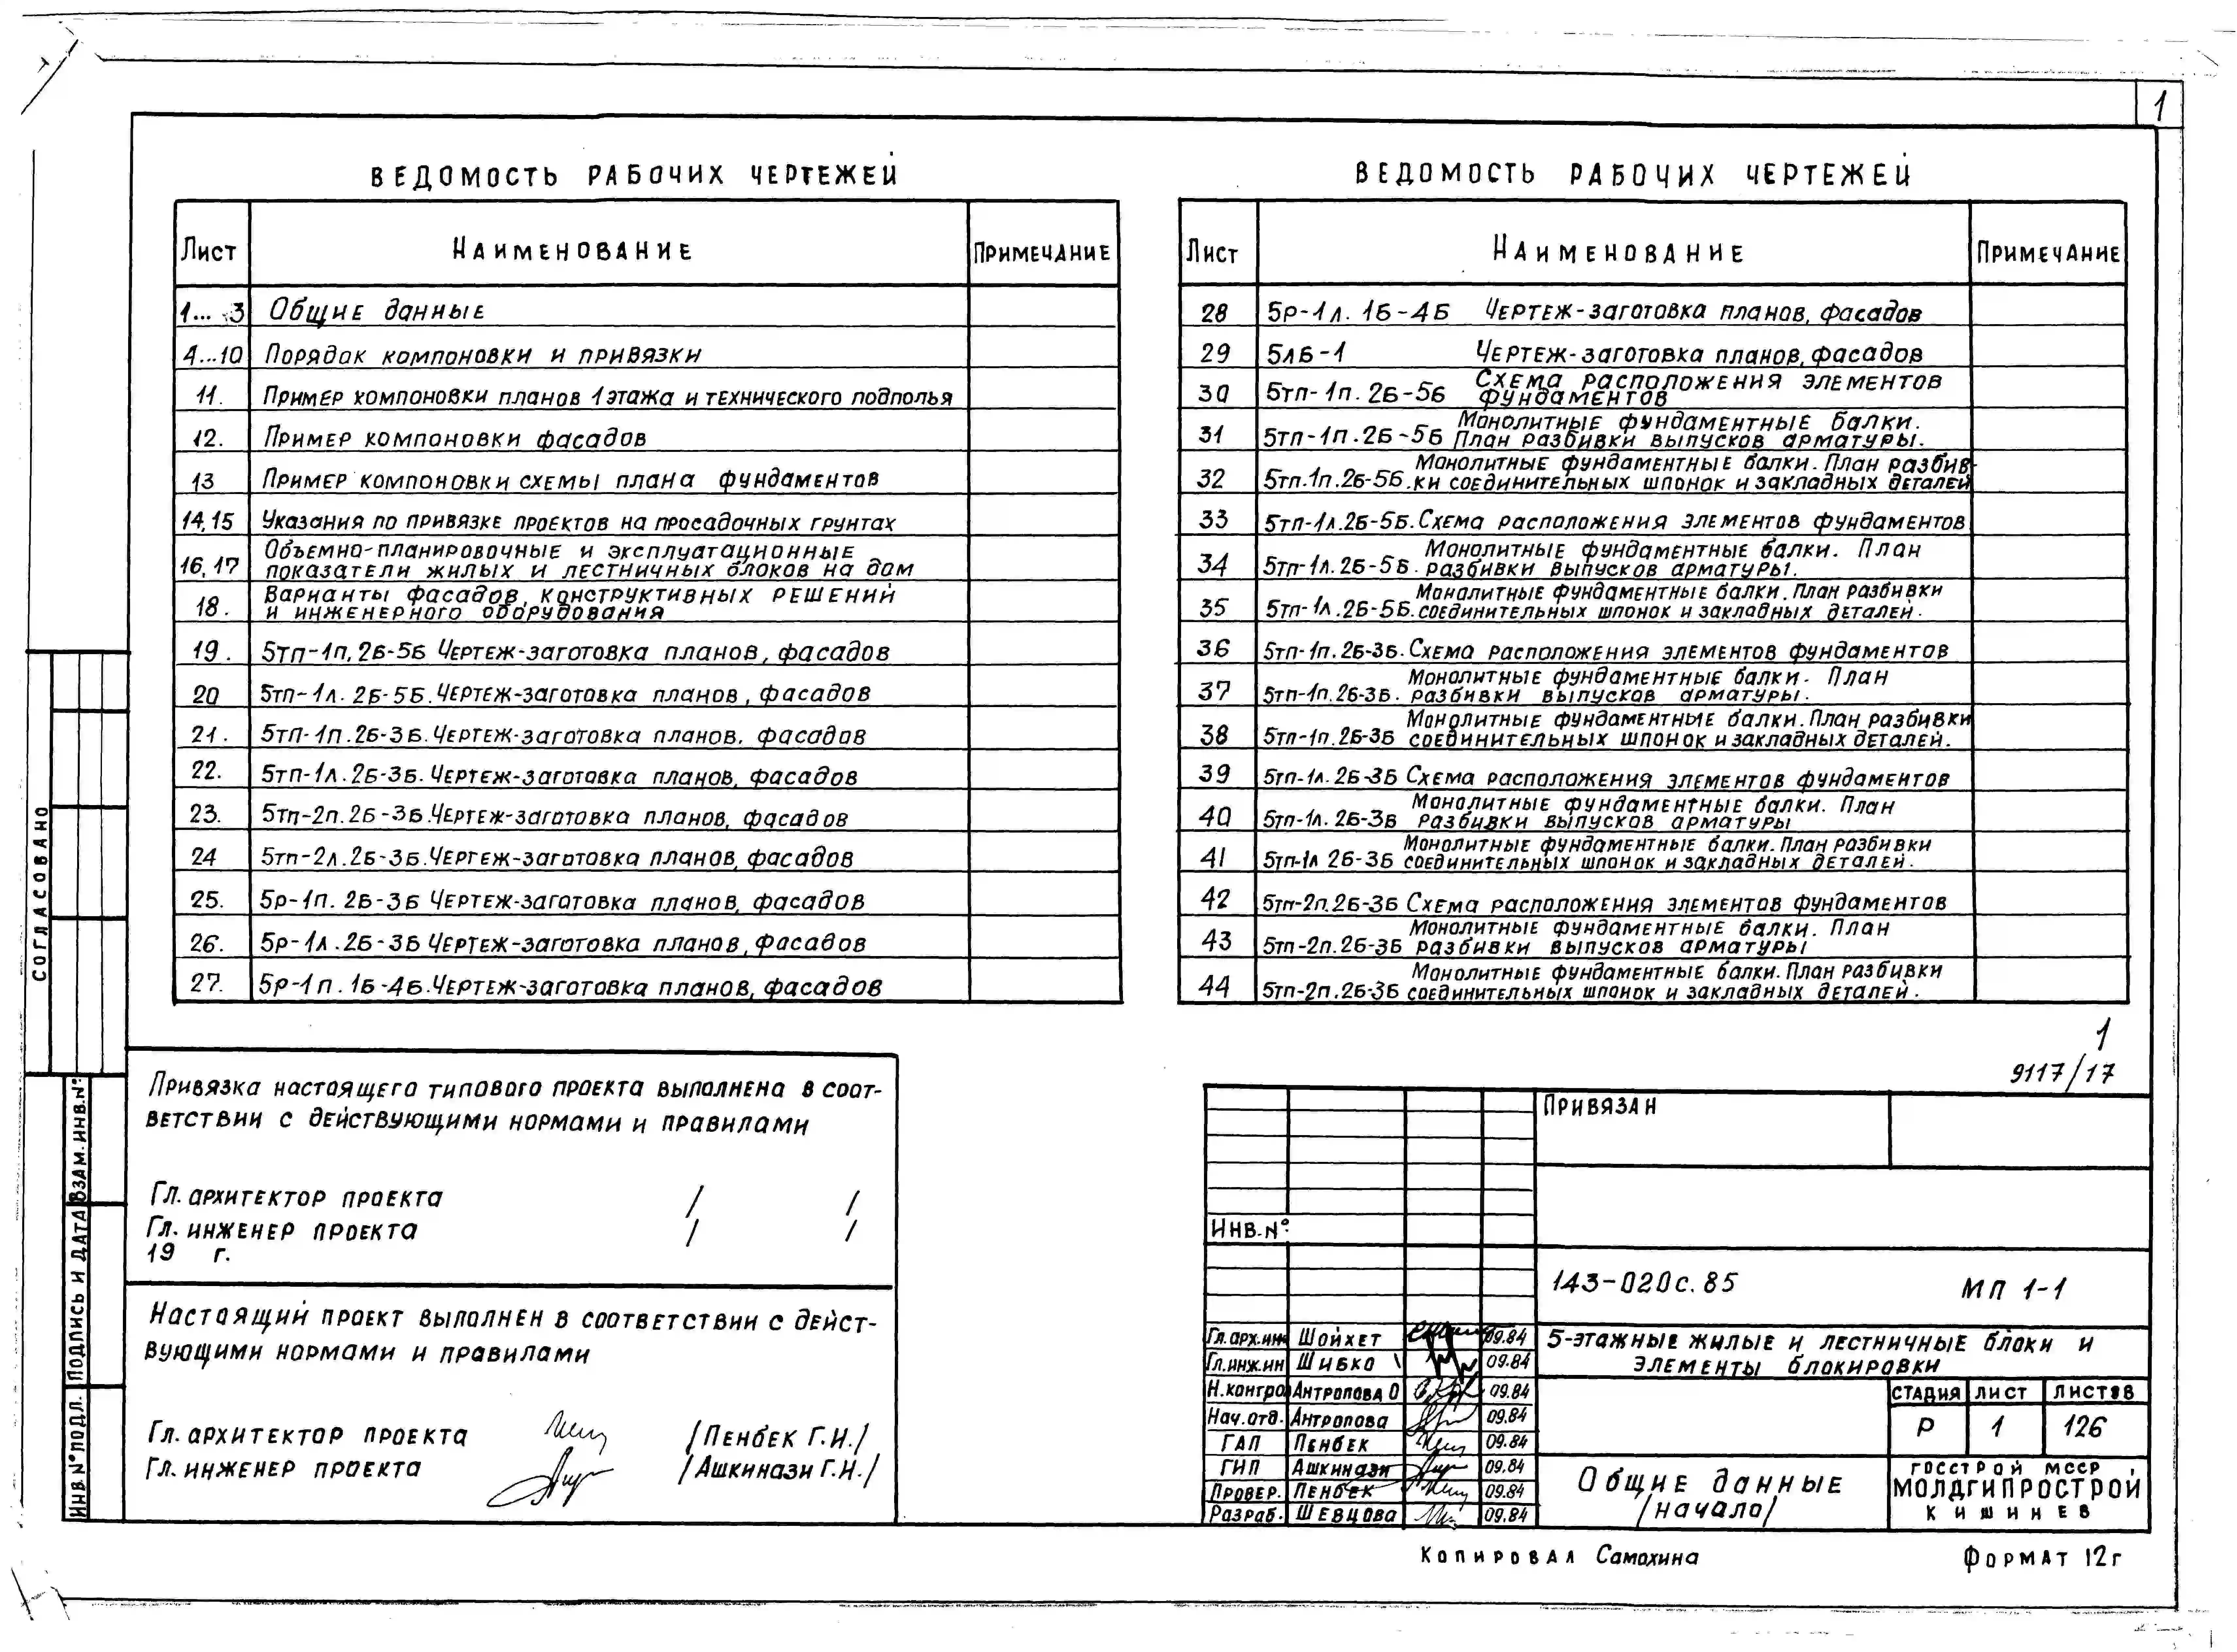 1
ВЕДОМОСТЬ РАБОЧИХ ЧЕРТЕЖЕЙ
Лист Наименование Примечание
1... 3 Общие данные
4...10 Порядок компоновки и привязки
11. Пример компоновки планов 1 этажа и технического подполья
12. Пример компоновки фасадов
13 Пример компоновки схемы плана фундаментов
14,15 Указания по привязке проектов на просадочных грунтах
16,17 Объемно-планировочные и эксплуатационные
показатели жилых и лестничных блоков на дом
18. Варианты фасадов, конструктивных решений
и инженерного оборудования
19. 5тп-1п.2Б-5Б Чертеж-заготовка планов, фасадов
20 5тп-1л.2Б-5Б. Чертеж-заготовка планов, фасадов
21. 5тп-1п.2Б-3Б. Чертеж-заготовка планов, фасадов
22. 5тп-1л.2Б-3Б. Чертеж-заготовка планов, фасадов
23. 5тп-2п.2Б-3Б. Чертеж-заготовка планов, фасадов
24 5тп-2л.2Б-3Б. Чертеж-заготовка планов, фасадов
25. 5р-1п.2Б-3Б Чертеж-заготовка планов, фасадов
26. 5р-1л.2Б-3Б Чертеж-заготовка планов, фасадов
27. 5р-1п.1Б-4Б. Чертеж-заготовка планов, фасадов
ВЕДОМОСТЬ РАБОЧИХ ЧЕРТЕЖЕЙ
Лист Наименование Примечание
28 5р-1л. 1Б-4Б Чертеж-заготовка планов, фасадов
29 5лБ-1 Чертеж-заготовка планов, фасадов
30 5тп-1п.2Б-5Б Схема расположения элементов
фундаментов
31 5тп-1п.2Б-5Б Монолитные фундаментные балки.
План разбивки выпусков арматуры.
32 5тп-1п.2Б-5Б. Монолитные фундаментные балки. План разбив-
ки соединительных шпонок и закладных деталей
33 5тп-1л.2Б-5Б. Схема расположения элементов фундаментов
34 5тп-1л.2Б-5Б. Монолитные фундаментные балки. План
разбивки выпусков арматуры.
35 5тп-1л.2Б-5Б. Монолитные фундаментные балки. План разбивки
соединительных шпонок и закладных деталей.
36 5тп-1п.2Б-3Б. Схема расположения элементов фундаментов
37 5тп-1п.2Б-3Б. Монолитные фундаментные балки. План
разбивки выпусков арматуры.
38 5тп-1п.2Б-3Б Монолитные фундаментные балки. План разбивки
соединительных шпонок и закладных деталей.
39 5тп-1л.2Б-3Б Схема расположения элементов фундаментов
40 5тп-1л.2Б-3Б Монолитные фундаментные балки. План
разбивки выпусков арматуры
41 5тп-1л 2Б-3Б Монолитные фундаментные балки. План разбивки
соединительных шпонок и закладных деталей.
42 5тп-2п.2Б-3Б Схема расположения элементов фундаментов
43 5тп-2п.2Б-3Б Монолитные фундаментные балки. План
разбивки выпусков арматуры
44 5тп-2п.2Б-3Б Монолитные фундаментные балки. План разбивки
соединительных шпонок и закладных деталей.
СОГЛАСОВАНО
Инв.№ подл. Подпись и дата Взам.инв.№
Привязка настоящего типового проекта выполнена в соот-
ветствии с действующими нормами и правилами
Гл. архитектор проекта / /
Гл. инженер проекта / /
19 г.
Настоящий проект выполнен в соответствии с дейст-
вующими нормами и правилами
Гл. архитектор проекта /Пенбек Г.И./
Гл. инженер проекта /Ашкинази Г.И./
1
9117/17
Привязан
Инв.№
143-020с.85 МП 1-1
Гл.арх.инж Шойхет 09.84
Гл.инж.ин Шибко 09.84
Н.контро Антропова О 09.84
Нач.отд. Антропова 09.84
ГАП Пенбек 09.84
ГИП Ашкинази 09.84
Провер. Пенбек 09.84
Разраб. Шевцова 09.84
5-этажные жилые и лестничные блоки и
элементы блокировки
Стадия Лист Листов
Р 1 126
Общие данные
/начало/
Госстрой МССР
МОЛДГИПРОСТРОЙ
Кишинев
Копировал Самохина Формат 12г